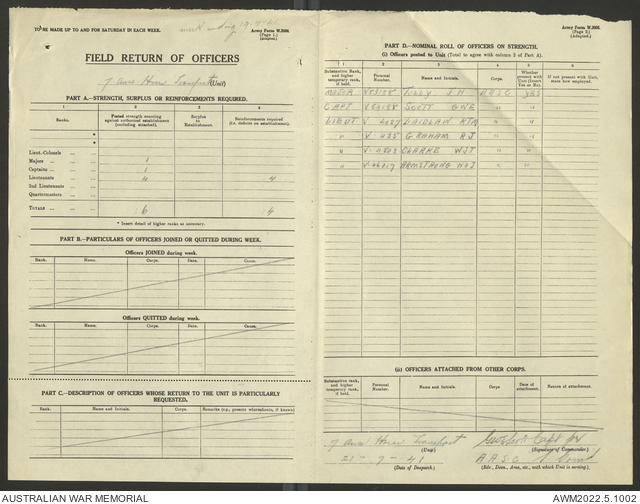 TO BE MADE UP TO AND FOR SATURDAY IN EACH WEEK.
Army Form W.3008.
(Page 1.)
(Adapted.)
FIELD RETURN OF OFFICERS
(Unit)
PART A.—STRENGTH, SURPLUS OR REINFORCEMENTS REQUIRED.
1 2 3 4
Ranks. Posted strength counting against authorized establishment (excluding attached). Surplus to Establishment. Reinforcements required (i.e. deficits on establishment).
*
*
Lieut.-Colonels
Majors 1
Captains 1
Lieutenants 4 4
2nd Lieutenants
Quartermasters
TOTALS 6 4
* Insert detail of higher ranks as necessary.
PART B.—PARTICULARS OF OFFICERS JOINED OR QUITTED DURING WEEK.
Officers JOINED during week.
Rank. Name. Corps. Date. Cause.
Officers QUITTED during week.
Rank. Name. Corps. Date. Cause.
PART C.—DESCRIPTION OF OFFICERS WHOSE RETURN TO THE UNIT IS PARTICULARLY
REQUESTED.
Rank. Name and Initials. Corps. Remarks (e.g., present whereabouts, if known)
Army Form W.3008.
(Page 2.)
(Adapted.)
PART D.—NOMINAL ROLL OF OFFICERS ON STRENGTH.
(i) Officers posted to Unit (Total to agree with column 2 of Part A).
1 2 3 4 5 6
Substantive Rank, and higher temporary rank, if held. Personal Number. Name and Initials. Corps. Whether present with Unit (Insert Yes or No). If not present with Unit, state how employed.
MAJOR J H AASC YES
CAPT SCOTT GWE " "
LIEUT LAIDLAW KTM " "
" GRAHAM RJ " "
" CLARKE WJT " "
" ARMSTRONG " "
(ii) OFFICERS ATTACHED FROM OTHER CORPS.
Substantive rank, and higher temporary rank, if held. Personal Number. Name and Initials. Corps Date of attachment. Nature of attachment.
Transport
(Unit)
(Signature of Commander.)
21-9-41
(Date of Despatch.)
AASC
(Bde., Divn., Area, etc., with which Unit is serving.)
AUSTRALIAN WAR MEMORIAL
AWM2022.5.1002